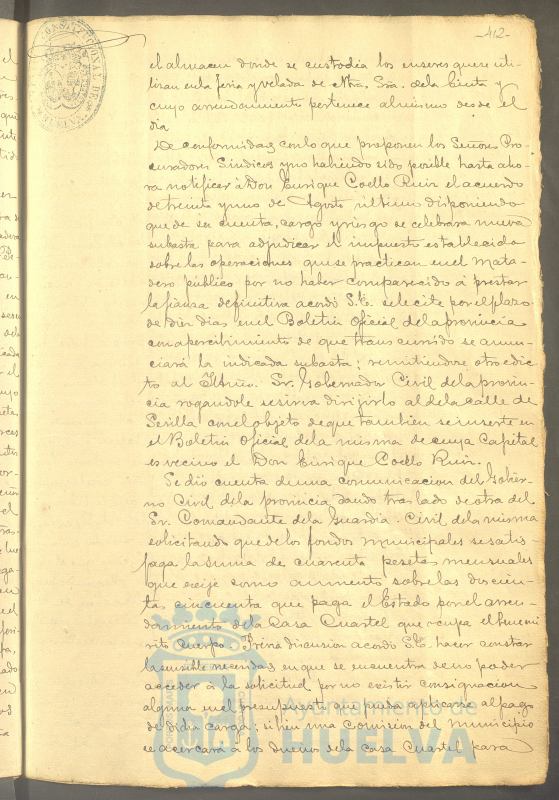 -412-
el almacen donde se custodia los enseres que se uti-
lizan en la feria y velada de Ntra. Sra. de la Cinta y
cuyo arrendamiento pertenece al mismo desde el
dia
De conformidad con lo que proponen los Señores Pro-
curadores Síndicos y no habiendo sido posible hasta aho-
ra notificar a Don Enrique Coello Ruiz el acuerdo
de treinta y uno de Agosto último disponiendo
que de su cuenta, cargo y riesgo se celebrara nueva
subasta para adjudicar el impuesto establecido
sobre las operaciones que se practican en el Mata-
dero público por no haber comparecido á prestar
la fianza definitiva acordó S.E. se le cite por el plazo
de diez dias en el Boletin Oficial de la provincia
con apercibimiento de que transcurrido se anun-
ciará la indicada subasta; remitiendose otro edic-
to al Iltmo. Sr. Gobernador Civil de la provin-
cia rogandole se sirva dirijirlo al de la calle de
Sevilla con el objeto de que tambien se inserte en
el Boletin Oficial de la misma de cuya Capital
es vecino el Don Enrique Coello Ruiz.
Se dió cuenta de una comunicacion del Gobier-
no Civil de la provincia dando traslado de otra del
Sr. Comandante de la Guardia Civil de la misma
solicitando que de los fondos municipales se satis-
faga la suma de cuarenta pesetas mensuales
que exije como aumento sobre las doscien-
tas cincuenta que paga el Estado por el arren-
damiento de la Casa Cuartel que ocupa el beneme-
rito cuerpo. Previa discusion acordó S.E. hacer constar
la sensible necesidad en que se encuentra de no poder
acceder á la solicitud por no existir consignacion
alguna en el presupuesto que pueda aplicarse al pago
de dicha carga; si bien una Comision del municipio
se acercará á los dueños de la casa Cuartel para
Ayuntamiento de
HUELVA